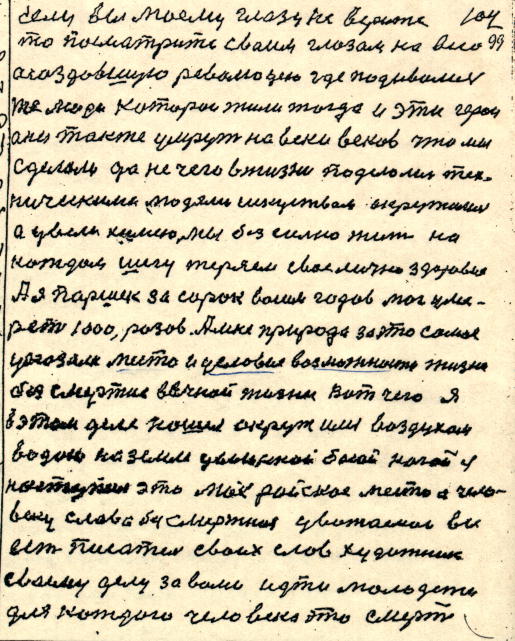 сели вы моему глазу не верите 104
то посматрите своим глозам на всю 99
создавшую революцию где подивалися
те люди которои жили тогда и эти герои
они также умрут на веки веков что мы
сделоли да не чего в жизни поделолися тех-
ническими людями искуством окружилися
а увели химею, мы без силно жит на
каждом шегу теряем свое лично здоровие
А я паршек за сорок восим годов мог уме-
рет 1000, розов. А мне природа за это самое
указала место и условие возможность жизни
без смертие вечной жизни вот чего я
в этом деле ношел окружил воздухом
водою на земле босой ногой я
наступил это мое райское место а чело-
веку слава бессмертная уважаемое вы
ест писател своих слов художник
своему делу за вами идти молодеж
для каждого человека это смерт